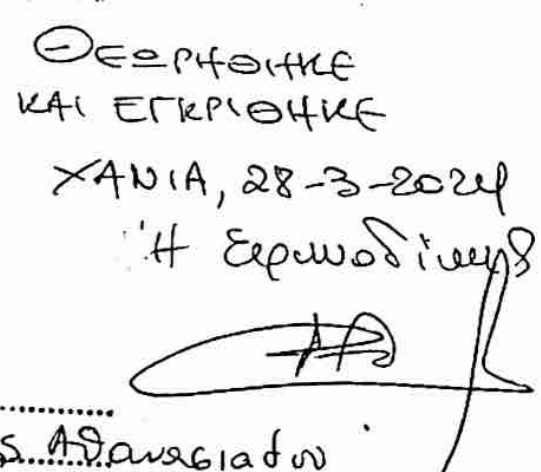 ΘΕΩΡΗΘΗΚΕ
ΚΑΙ ΕΓΚΡΙΘΗΚΕ
ΧΑΝΙΑ, 28-3-2024
Ή Ειρηνοδίκης
ς Αθανασιάδου